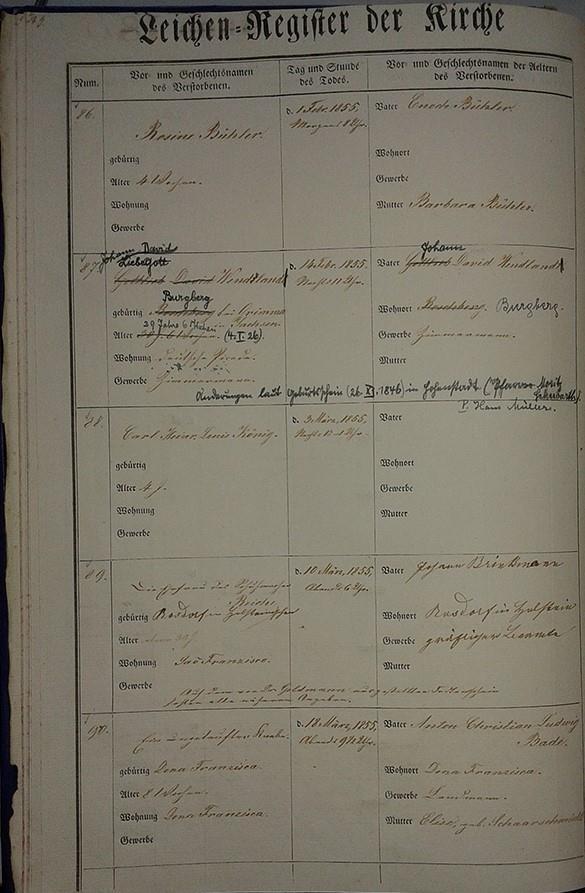 Leichen-Register der Kirche
Num.
Vor- und Geschlechtsnamen
des Verstorbenen.
Tag und Stunde
des Todes.
Vor- und Geschlechtsnamen der Aeltern
des Verstorbenen.
86.
Rosine Bühler.
gebürtig
Alter 4 Wochen.
Wohnung
Gewerbe
d. 1 Febr. 1855,
Morgens 8 Uhr.
Vater Enode Bühler
Wohnort
Gewerbe
Mutter Barbara Bühler.
87.
Johann David
Liebegott
Gottlieb David Wendtland
Burgberg
gebürtig bei Grimma
in Sachsen.
29 Jahre 6 Wochen
Alter (4. I. 26).
Wohnung deutsche Parade.
Gewerbe Zimmermann.
14 Febr. 1855.
Nachts 11 Uhr.
Johann
Vater David Wendland
Wohnort Burgberg.
Gewerbe Zimmermann.
Mutter
Änderungen laut Geburtsschein (26. XI. 1846) in Hohenstadt (Pfarrer Moritz
P. Hans Müller.
88.
Carl Heinr. Louis König.
gebürtig
Alter 4 J.
Wohnung
Gewerbe
d. 3 März, 1855,
Vater
Wohnort
Gewerbe
Mutter
89.
Die Ehefrau des
gebürtig Rosdorf in Holsteinischen
Alter
Wohnung Saõ Francisco.
Gewerbe
Auf dem von Dr. Goldmann ausgestellten Todtenschein
fehlen alle näheren Angaben.
d. 10 März, 1855,
Abends 6 Uhr.
Vater Johann Brinkmann
Wohnort Rosdorf in Holstein
Gewerbe gräflicher Beamte
Mutter
90.
Ein ungetaufter Knabe.
gebürtig Dona Francisca.
Alter 8 Wochen.
Wohnung Dona Francisca.
Gewerbe
d. 18 März, 1855,
Abends 9½ Uhr.
Vater Anton Christian Ludwig
Bade.
Wohnort Dona Francisca.
Gewerbe Landmann.
Mutter Elise, geb. Schaarschmidt